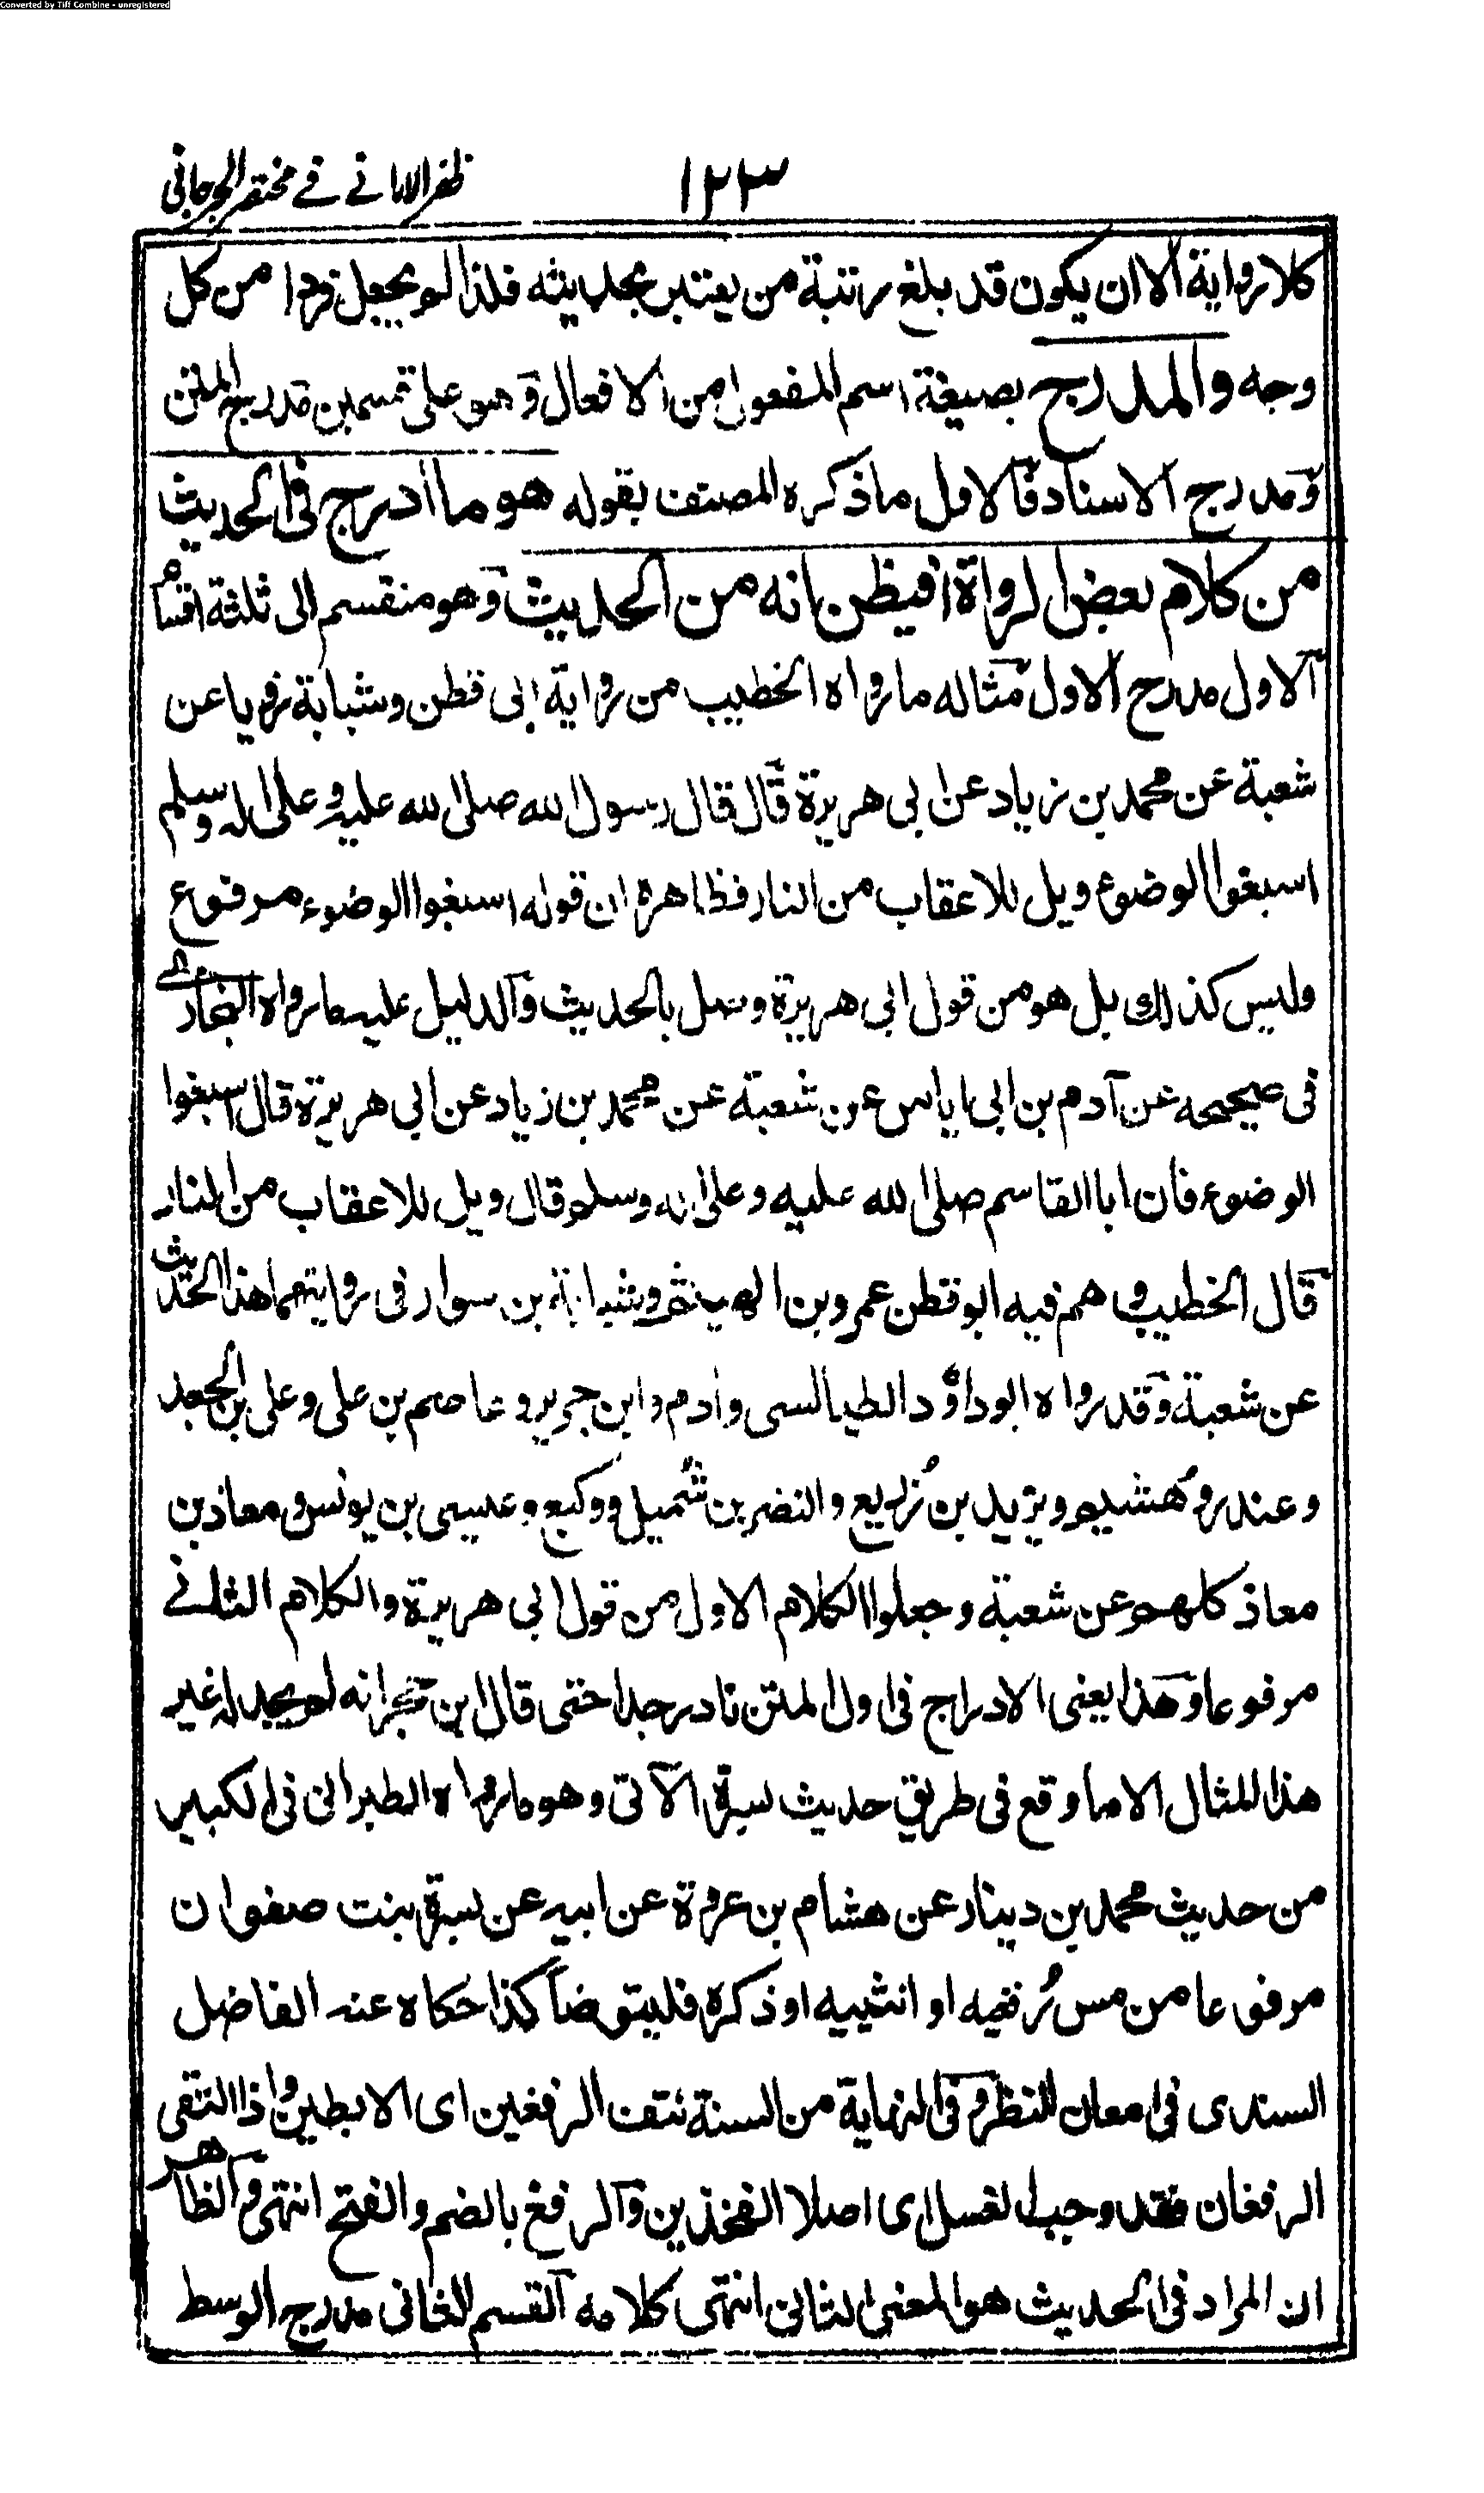 Converted by Tiff Combine - unregistered
١٢٣
ظفر الاماني في مختصر الجرجاني
كلا رواية الا ان يكون قد بلغ مرتبة من يعتبر بحديثه فلذا لم يجعل فردا من كل
وجه والمدرج بصيغة اسم المفعول من الافعال وهو على قسمين مدرج المتن
ومدرج الاسناد فالاول ما ذكره المصنف بقوله هو ما ادرج في الحديث
من كلام بعض الرواة فيظن انه من الحديث وهو منقسم الى ثلثة اقسام
الاول مدرج الاول مثاله ما رواه الخطيب من رواية ابي قطن وشبابة رويا عن
شعبة عن محمد بن زياد عن ابي هريرة قال قال رسول الله صلى الله عليه وعلى اله وسلم
اسبغوا الوضوء ويل للاعقاب من النار فظاهره ان قوله اسبغوا الوضوء مرفوع
وليس كذلك بل هو من قول ابي هريرة وصل بالحديث والدليل عليه ما رواه البخاري
في صحيحه عن آدم بن ابي اياس عن شعبة عن محمد بن زياد عن ابي هريرة قال اسبغوا
الوضوء فان ابا القاسم صلى الله عليه وعلى اله وسلم قال ويل للاعقاب من النار
قال الخطيب وهم فيه ابو قطن عمرو بن الهيثم وشبابة بن سوار في روايتهما هذا الحديث
عن شعبة وقد رواه ابو داؤد الطيالسي وادم وابن جرير وعاصم بن علي وعلي بن الجعد
وعندر وهشيم ويزيد بن زريع والنضر بن شميل ووكيع وعيسى بن يونس ومعاذ بن
معاذ كلهم عن شعبة وجعلوا الكلام الاول من قول ابي هريرة والكلام الثاني
مرفوعا وهذا يعني الادراج في اول المتن نادر جدا حتى قال ابن حجر انه لم يجد له غير
هذا المثال الا ما وقع في طريق حديث بسرة الآتي وهو ما رواه الطبراني في الكبير
من حديث محمد بن دينار عن هشام بن عروة عن ابيه عن بسرة بنت صفوان
مرفوعا من مس رفغيه او انثييه او ذكره فليتوضأ كذا حكاه عنه الفاضل
السندي في امعان النظر وفي النهاية من السنة نتف الرفغين اى الابطين واذا التقى
الرفغان فقد وجب الغسل اى اصلا الفخذين والرفغ بالضم والفتح انتهى والظاهر
ان المراد في الحديث هو المعنى الثاني انتهى كلامه القسم الثاني مدرج الوسط